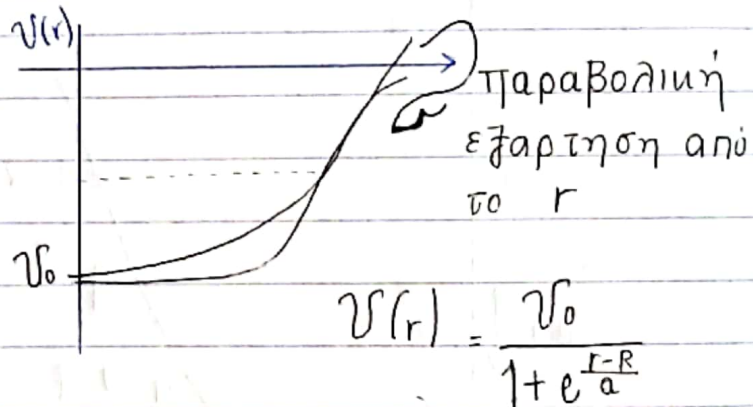 V(r)
παραβολική
εξαρτηση από
το r
V₀
V(r) = V₀ / (1 + e^((r-R)/a))